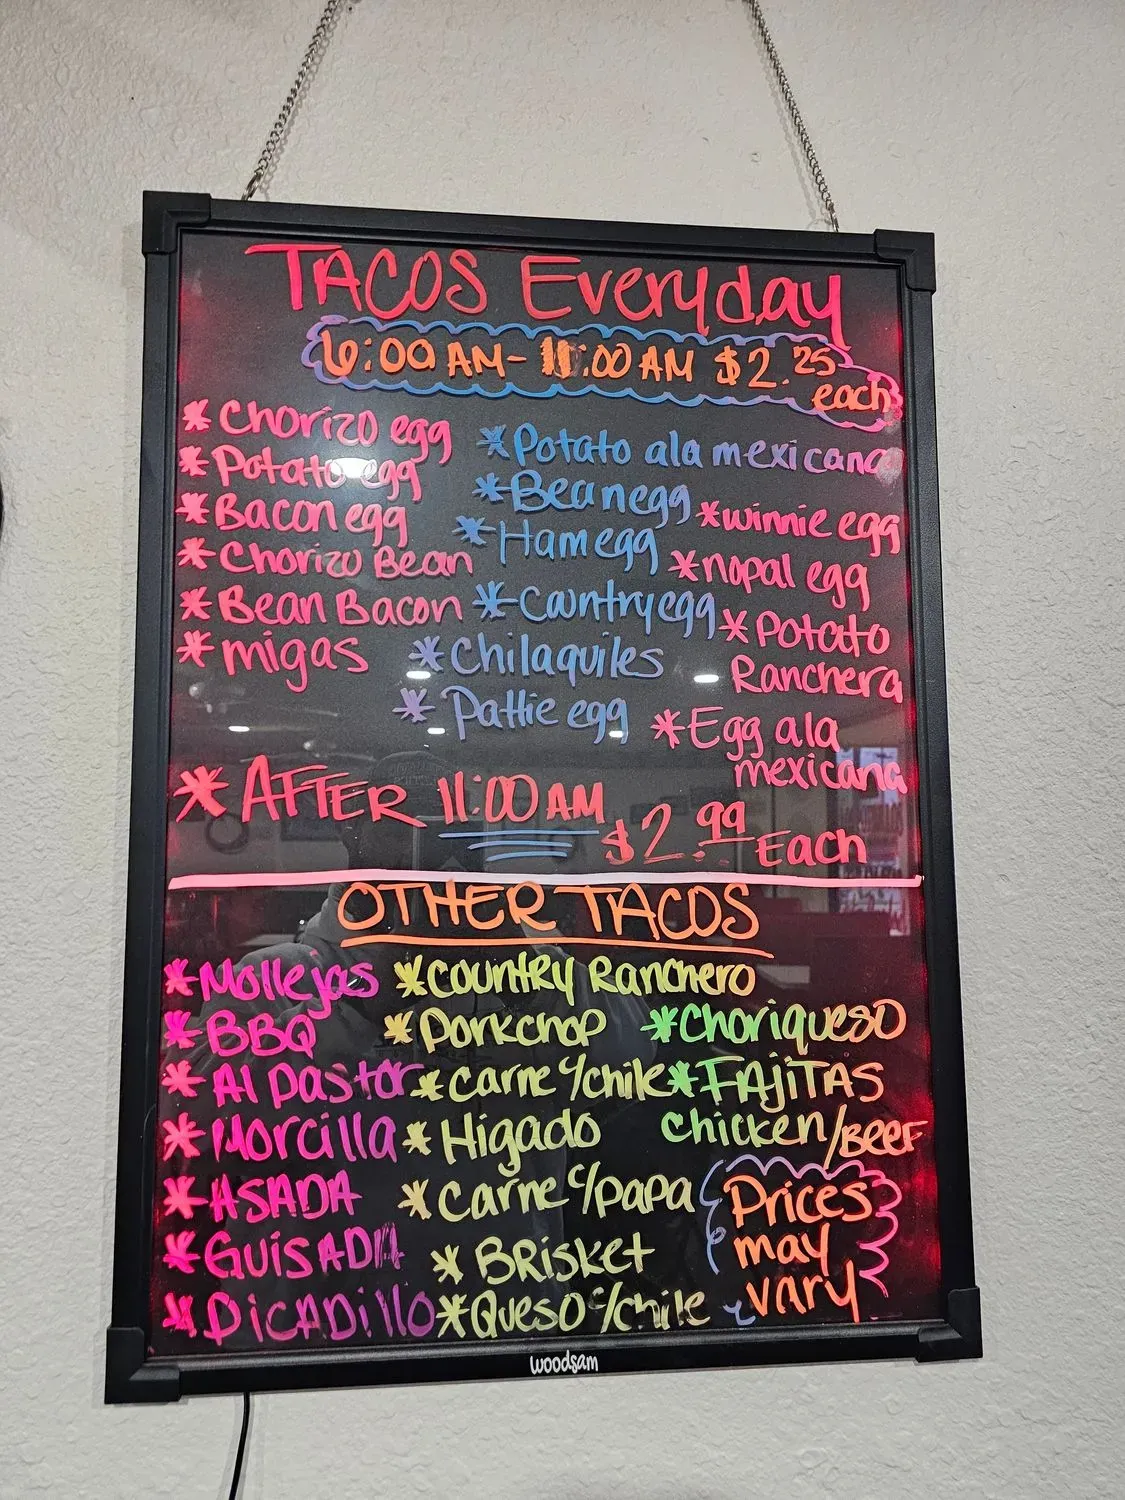 TACOS Everyday
6:00 AM - 11:00 AM $2.25
each
* Chorizo egg
* Potato egg
* Bacon egg
* Chorizo Bean
* Bean Bacon
* migas
* Potato ala mexicana
* Bean egg
* Ham egg
* Country egg
* Chilaquiles
* Pattie egg
* winnie egg
* nopal egg
* Potato
Ranchera
* Egg ala
mexicana
* AFTER 11:00 AM $2.99 Each
OTHER TACOS
* Mollejas
* BBQ
* Al Pastor
* Morcilla
* ASADA
* GUISADA
* PICADillo
* Country Ranchero
* Porkchop
* Carne c/chile
* Higado
* Carne c/papa
* BRisket
* Queso c/chile
* Choriqueso
* FAjiTAS
Chicken/BEEF
Prices
may
vary
woodsam